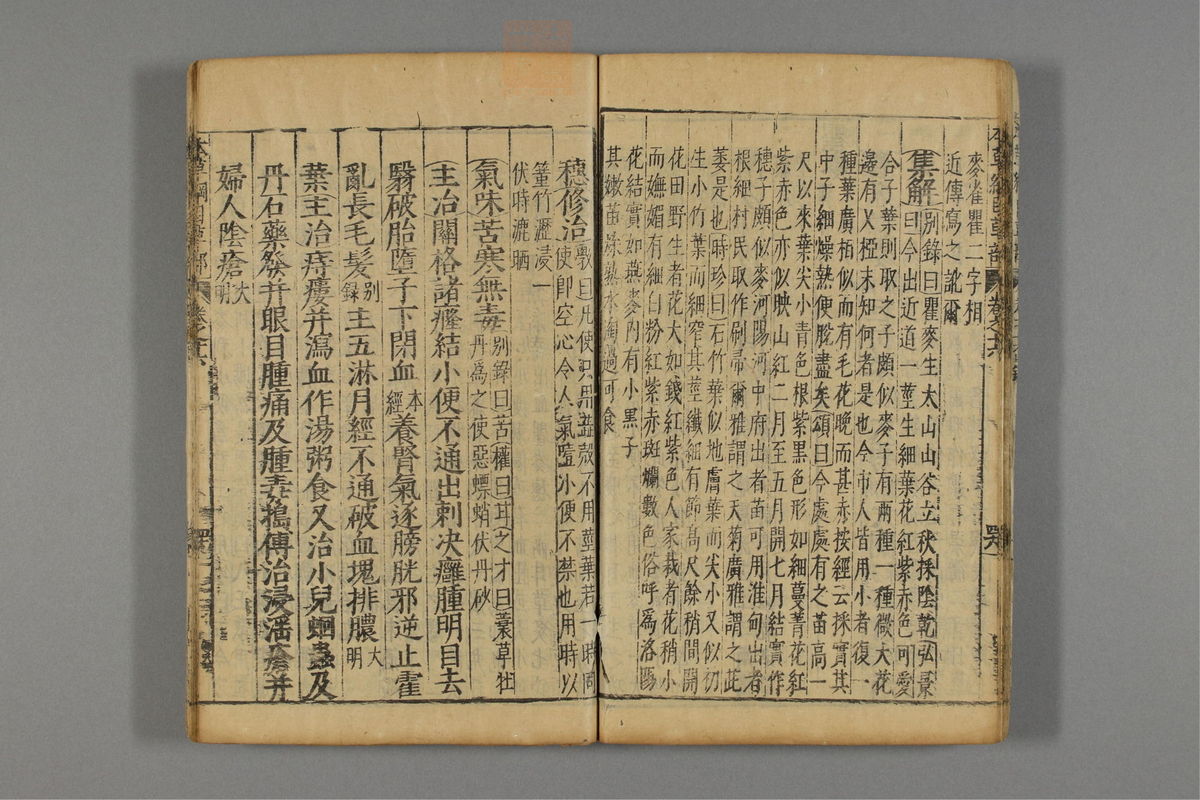 麥雀瞿二字相
近傳寫之訛爾
集解別錄曰瞿麥生太山山谷立秋採陰乾弘景
曰今出近道一莖生細葉花紅紫赤色可愛
合子葉刈取之子頗似麥子有兩種一種微大花
邊有叉椏未知何者是也今市人皆用小者復一
種葉廣相似而有毛花晚而甚赤按經云採實其
中子細燥熟便脫盡矣頌曰今處處有之苗高一
尺以來葉尖小青色根紫黑色形如細蔓菁花紅
紫赤色亦似映山紅二月至五月開七月結實作
穗子頗似麥河陽河中府出者苗可用淮甸出者
根細村民取作刷帚爾雅謂之大菊廣雅謂之茈
萎是也時珍曰石竹葉似地膚葉而尖小又似初
生小竹葉而細窄其莖纖細有節高尺餘稍間開
花田野生者花大如錢紅紫色人家栽者花稍小
而嫵媚有細白粉紅紫赤斑斕數色俗呼爲洛陽
花結實如燕麥內有小黑子
其嫩苗煠熟水淘過可食
穗修治斆曰凡使只用蕋殼不用莖葉若一時同
使卽空心令人氣噎小便不禁也用時以
䈽竹瀝浸一
伏時漉晒
氣味苦寒無毒别錄曰苦權曰甘之才曰蘘草牡
丹爲之使惡螵蛸伏丹砂
主治關格諸癃結小便不通出刺決癰腫明目去
翳破胎墮子下閉血本經養腎氣逐膀胱邪逆止霍
亂長毛髮别錄主五淋月經不通破血塊排膿大明
葉主治痔瘻并瀉血作湯粥食又治小兒蛔蟲及
丹石藥發并眼目腫痛及腫毒搗傅治浸淫瘡并
婦人陰瘡大明